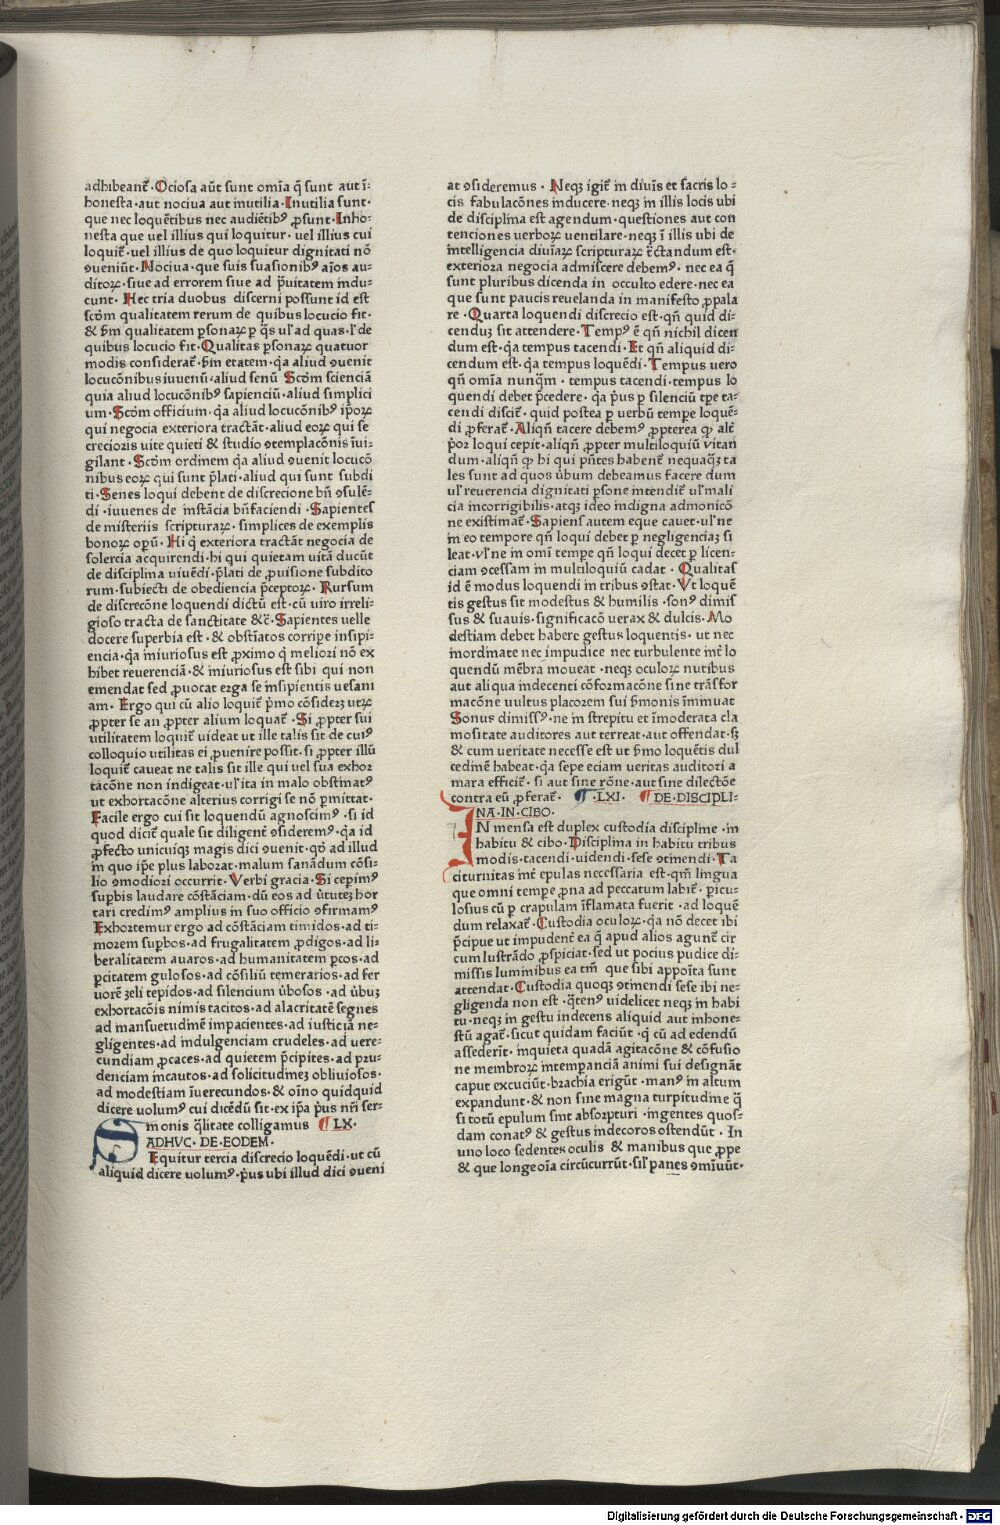 adhibeant᷒·Ociosa aūt sunt omīa q̄ sunt aut ī-
honesta·aut nociua aut inutilia·Inutilia sunt·
que nec loquētibus nec audiētibꝰ ꝓsunt·Inho-
nesta que uel illius qui loquitur·uel illius cui
loquit᷒·uel illius de quo loquitur dignitati nō
ꝯueniūt·Nociua·que suis suasionibꝰ aīos au-
ditoꝝ·siue ad errorem siue ad p̄uitatem indu-
cunt· Hec tria duobus discerni possunt id est
scd̄m qualitatem rerum de quibus locucio fit·
& s̄m qualitatem ꝑsonaꝝ ꝑ q̄s ul' ad quas·l' de
quibus locucio fit·Qualitas ꝑsonaꝝ quatuor
modis considerat᷒·s̄m etatem·q̄a aliud ꝯuenit
locucōnibus iuuenū·aliud senū Scd̄m scienciā
quia aliud locucōnibꝰ sapienciū·aliud simplici
um·Scd̄m officium·q̄a aliud locucōnibꝰ ip̄oꝝ
qui negocia exteriora tractāt·aliud eoꝝ qui se
crecioris uite quieti & studio ꝯtemplacōnis īui-
gilant·Scd̄m ordinem q̄a aliud ꝯuenit locucō
nibus eoꝝ qui sunt p̄lati·aliud qui sunt subdi
ti·Senes loqui debent de discrecione bn̄ ꝯsulē-
di·iuuenes de instācia bn̄faciendi·Sapientes
de misteriis scripturaꝝ·simplices de exemplis
bonoꝝ opū· Hi q̄ exteriora tractāt negocia de
solercia acquirendi·hi qui quietam uitā ducūt
de disciplina uiuēdi·p̄lati de ꝓuisione subdito
rum·subiecti de obediencia p̄ceptoꝝ· Rursum
de discrecōne loquendi dictū est·cū uiro irreli-
gioso tracta de sanctitate &c̄·Sapientes uelle
docere superbia est·& obstīatos corripe insipi-
encia·q̄a iniuriosus est ꝓximo q̄ meliori nō ex
hibet reuerenciā·& iniuriosus est sibi qui non
emendat sed ꝓuocat erga se insipientis uesani
am· Ergo qui cū alio loquit᷒ p̄mo cōsideꝫ utꝝ
ꝓpter se an ꝓpter alium loquat᷒·Si ꝓpter sui
utilitatem loquit᷒ uideat ut ille talis sit de cuiꝰ
colloquio utilitas ei ꝓuenire possit·si ꝓpter illū
loquit᷒ caueat ne talis sit ille qui uel sua exhor
tacōne non indigeat·ul' ita in malo obstinatꝰ
ut exhortacōne alterius corrigi se nō ꝑmittat·
Facile ergo cui sit loquendū agnoscimꝰ·si id
quod dicit᷒ quale sit diligent᷒ ꝯsideremꝰ·q̄a id
ꝓfecto unicuiqꝫ magis dici ꝯuenit·qd̄ ad illud
in quo ip̄e plus laborat·malum sanādum cōsi-
lio ꝯmodiori occurrit·Verbi gracia·Si cepimꝰ
supb̄is laudare cōstāciam·dū eos ad ūtuteꝫ hor
tari credimꝰ amplius in suo officio ꝯfirmamꝰ
Exhortemur ergo ad cōstāciam timidos·ad ti-
morem supb̄os·ad frugalitatem ꝓdigos·ad li-
beralitatem auaros·ad humanitatem ꝑcos·ad
ꝑcitatem gulosos·ad cōsiliū temerarios·ad fer
uorē zeli tepidos·ad silencium ūbosos·ad ūbuꝫ
exhortacōis nimis tacitos·ad alacritatē segnes
ad mansuetudinē impacientes·ad iusticiā ne-
gligentes·ad indulgenciam crudeles·ad uere-
cundiam ꝓcaces·ad quietem p̄cipites·ad pru-
denciam incautos·ad solicitudineꝫ obliuiosos·
ad modestiam īuerecundos·& oīno quidquid
dicere uolumꝰ cui dicēdū sit·ex ip̄a p̄us nr̄i ser-
monis q̄litate colligamus ¶LX·
ADHVC·DE·EODEM·
SEquitur tercia discrecio loquēdi·ut cū
aliquid dicere uolumꝰ·p̄us ubi illud dici ꝯueni
at ꝯsideremus· Neqꝫ igit᷒ in diuīs et sacris lo-
cis fabulacōnes inducere·neqꝫ in illis locis ubi
de disciplina est agendum·questiones aut con
tenciones uerboꝝ uentilare·neqꝫ ī illis ubi de
intelligencia diuīaꝝ scripturaꝝ t᷒ctandum est·
exteriora negocia admiscere debemꝰ· nec ea q̄
sunt pluribus dicenda in occulto edere·nec ea
que sunt paucis reuelanda in manifesto ꝓpala
re·Quarta loquendi discrecio est·qn̄ quid di-
cenduꝫ sit attendere·Tempꝰ ē qn̄ nichil dicen
dum est·q̄a tempus tacendi·Et qn̄ aliquid di-
cendum est·q̄a tempus loquēdi·Tempus uero
qn̄ omīa nunq̄m·tempus tacendi·tempus lo
quendi debet p̄cedere·q̄a p̄us ꝑ silenciū tp̄e ta-
cendi discit᷒·quid postea ꝑ uerbū tempe loquē-
di ꝓferat᷒·Aliqn̄ tacere debemꝰ ꝓpterea qꝫ alt᷒
p̄or loqui cepit·aliqn̄ ꝓpter multiloquiū vitan
dum·aliqn̄ qꝫ hi qui pn̄tes habent᷒ nequaq̄ꝫ ta
les sunt ad quos ūbum debeamus facere dum
ul' reuerencia dignitati ꝑsone intendit᷒ ul' mali
cia incorrigibilis·atqꝫ ideo indigna admonicō
ne existimat᷒·Sapiens autem eque cauet·ul' ne
in eo tempore qn̄ loqui debet ꝑ negligenciaꝫ si
leat·vl' ne in omī tempe qn̄ loqui decet ꝑ licen-
ciam ꝯcessam in multiloquiū cadat· Qualitas
id ē modus loquendi in tribus ꝯstat·Vt loquē
tis gestus sit modestus & humilis·sonꝰ dimis
sus & suauis·significacō uerax & dulcis·Mo
destiam debet habere gestus loquentis·ut nec
inordinate nec impudice nec turbulente int᷒ lo
quendū mēbra moueat·neqꝫ oculoꝝ nutibus
aut aliqua indecenti cōformacōne sine trāsfor
macōne uultus placorem sui s̄monis īmuat
Sonus dimissꝰ·ne in strepitu et īmoderata cla
mositate auditores aut terreat·aut offendat·sꝫ
& cum ueritate necesse est ut s̄mo loquētis dul
cedinē habeat·q̄a sepe eciam ueritas auditori a
mara efficit᷒·si aut sine rōne·aut sine dilectōe
contra eū ꝓferat᷒· ¶·LXI· ¶DE·DISCIPLI-
NA·IN·CIBO·
IN mensa est duplex custodia discipline·in
habitu & cibo·Disciplina in habitu tribus
modis·tacendi·uidendi·sese ꝯtinendi·Ta
citurnitas int᷒ epulas necessaria est·qm̄ lingua
que omni tempe ꝓna ad peccatum labit᷒·picu-
losius cū ꝑ crapulam īflamata fuerit·ad loquē
dum relaxat᷒·Custodia oculoꝝ·qa nō decet ibi
p̄cipue ut impudent᷒ ea q̄ apud alios agunt᷒ cir
cum lustrādo ꝓspiciat·sed ut pocius pudice di-
missis luminibus ea tm̄ que sibi appoīta sunt
attendat·Custodia quoqꝫ ꝯtinendi sese ibi ne-
gligenda non est·q̄tenꝰ uidelicet neqꝫ in habi
tu·neqꝫ in gestu indecens aliquid aut inhone-
stū agat᷒·sicut quidam faciūt·q̄ cū ad edendū
assederit·inquieta quadā agitacōne & cōfusio
ne membroꝝ intemp̄anciā animi sui designāt
caput excuciūt·brachia erigūt·manꝰ in altum
expandunt·& non sine magna turpitudine q̄
si totū epulum sint absorpturi·ingentes quos-
dam conatꝰ & gestus indecoros ostendūt· In
uno loco sedentes oculis & manibus que ꝓpe
& que longe oīa circūcurrūt·sil' panes ꝯmīuūt·
Digitalisierung gefördert durch die Deutsche Forschungsgemeinschaft - DFG